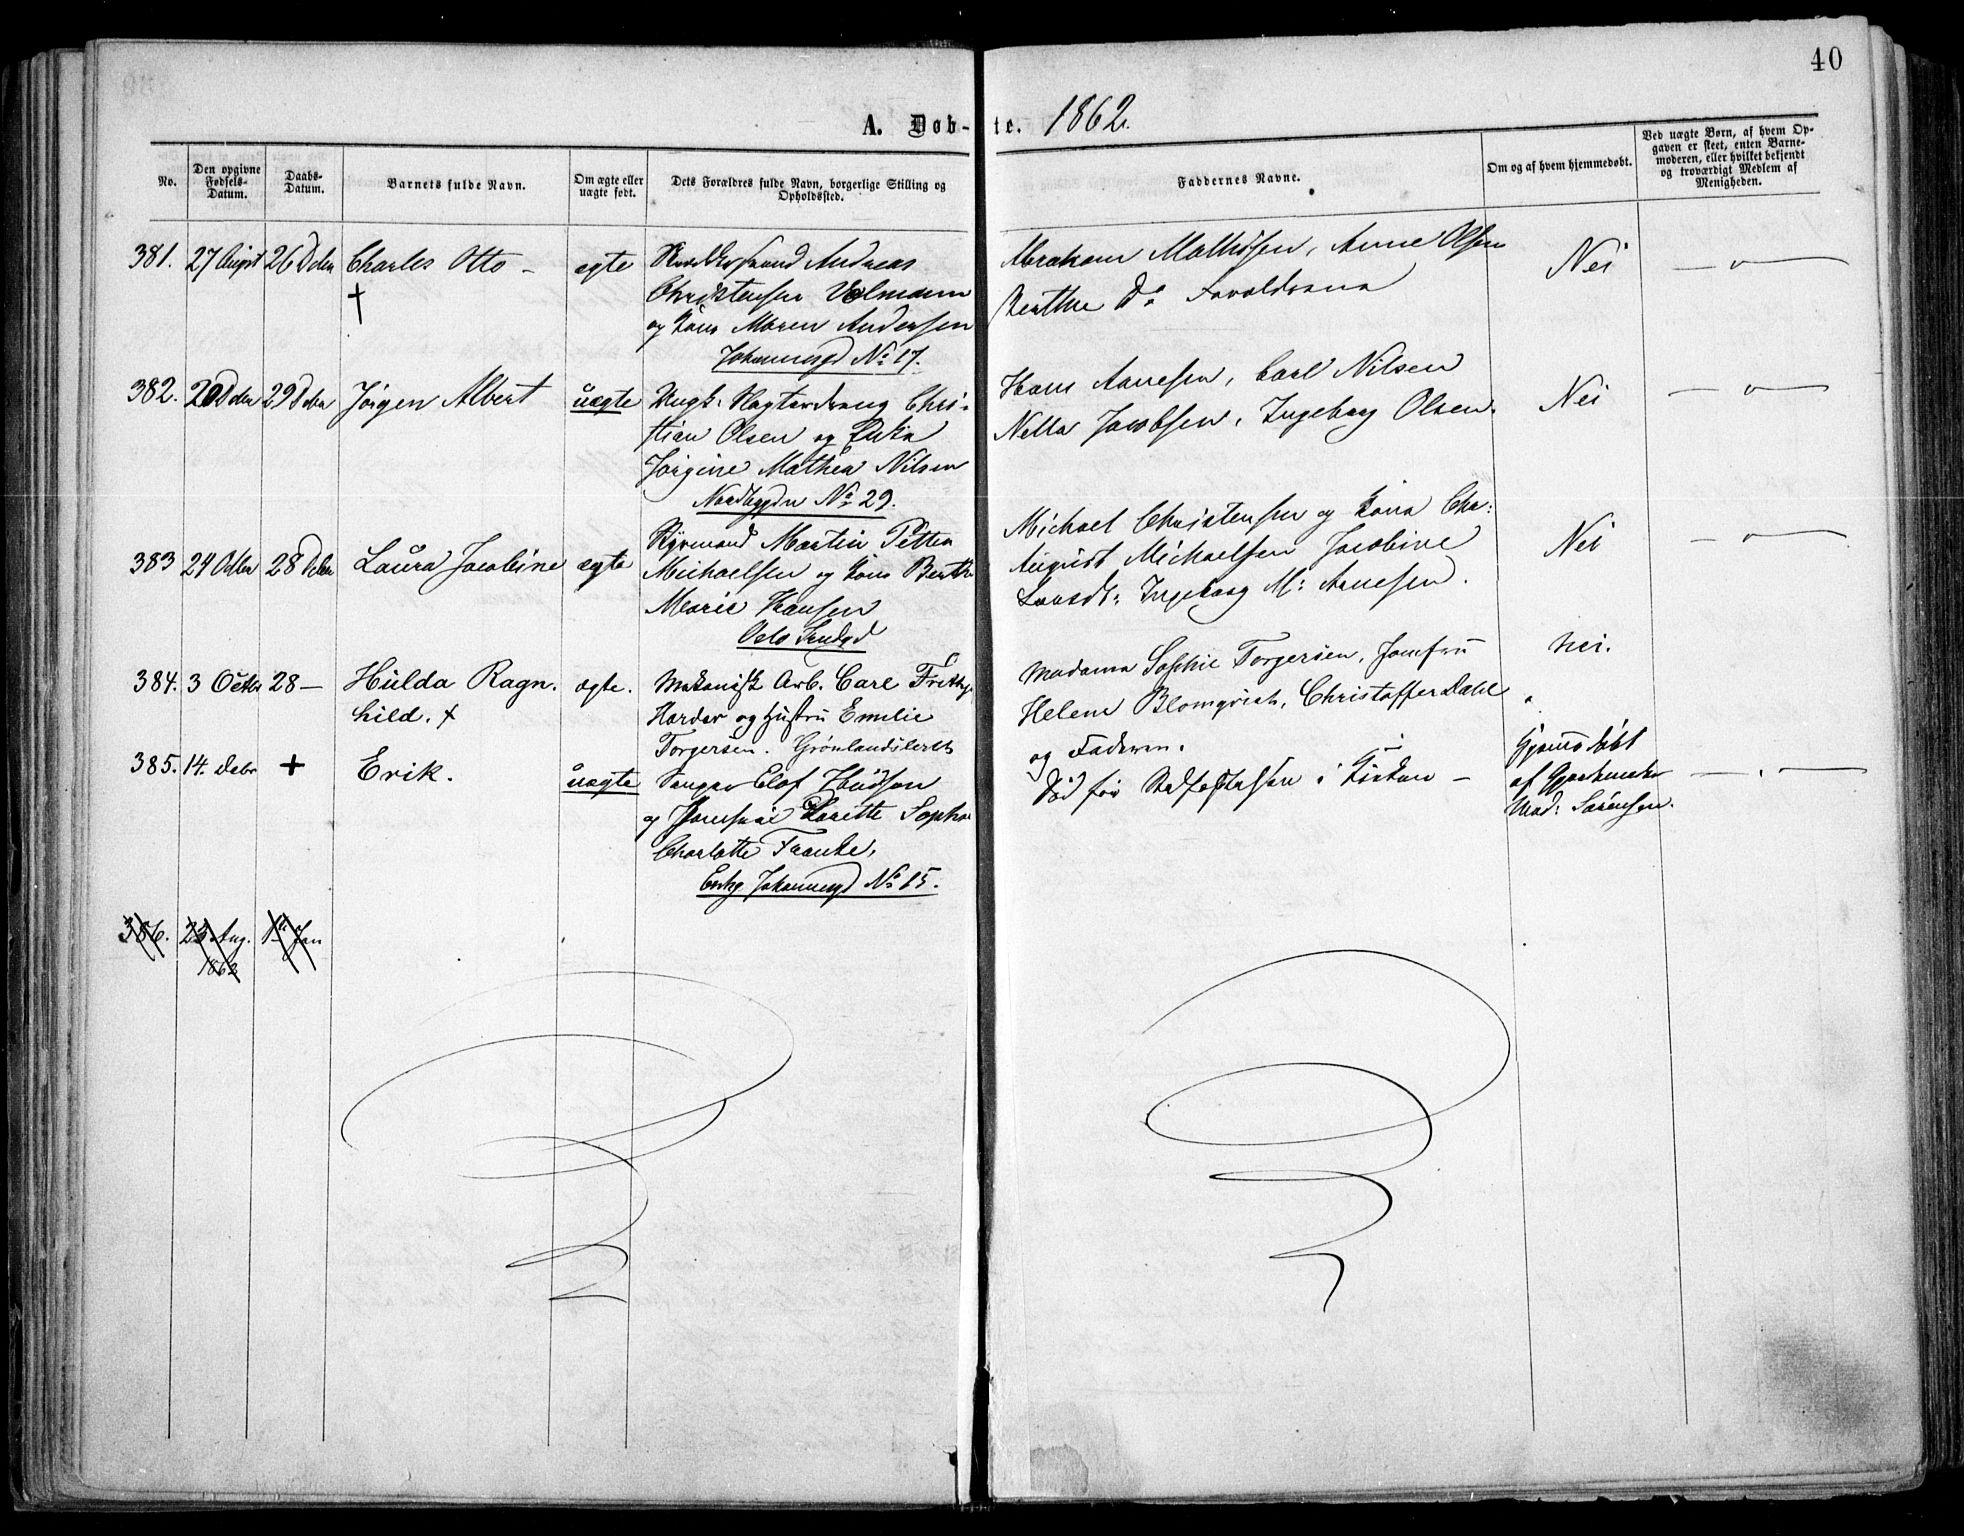 40
A. Døb-te. 1862.
No.
Den opgivne Fødsels-Datum.
Daabs-Datum.
Barnets fulde Navn.
Om ægte eller uægte født.
Dets Forældres fulde Navn, borgerlige Stilling og Opholdssted.
Faddernes Navne.
Om og af hvem hjemmedøbt.
Ved uægte Børn, af hvem Opgaven er skeet, enten Barnemoderen, eller hvilket bekjendt og troværdigt Medlem af Menigheden.
381. 27 August 26 Dcbr Charles Otto - ægte Andreas
†
Christensen Volmann
og Kone Maren Andersen
Johannesgd No 17.
Abraham Mathisen, Anne Olsen
Berthe Do
Nei
382. 20 Dcbr 29 Dcbr Jørgen Albert uægte Ungk. Christian Olsen og
Jørgine Mathea Nilsen
Nordbygdn No 29.
Hans Arnesen, Carl Nilsen
Nella Jacobsen, Ingeborg Olsen.
Nei
383 24 Octbr 28 Dcbr Laura Jacobine ægte Styrmand Martin Petter
Michaelsen og Kone Berthe
Marie Hansen
Oslo
Michael Christensen og Kona
August Michaelsen Jacobine
Ingeborg M: Arnesen.
Nei
384. 3 Octbr 28 — Hilda Ragn- ægte. Mekanisk Arb. Carl
hild. †
Harder og Hustru Emilie
Torgersen. Grønlandsleret
Madame Sophie Torgersen, Jomfru
Helene Blomqvist, Christoffer Dahl
og Faderen.
Nei.
385. 14. Debr + Erik. uægte Sanger Elof Hudson
og Jomfrue Sophie
Charlotte Franke,
Enkg Johannesgd No 15.
Død før Stadfæstelsen i Kirken —
Hjemmedøbt
af Gjordemoder
Mad: Sørensen.
386. 23 Aug. Jan
1862